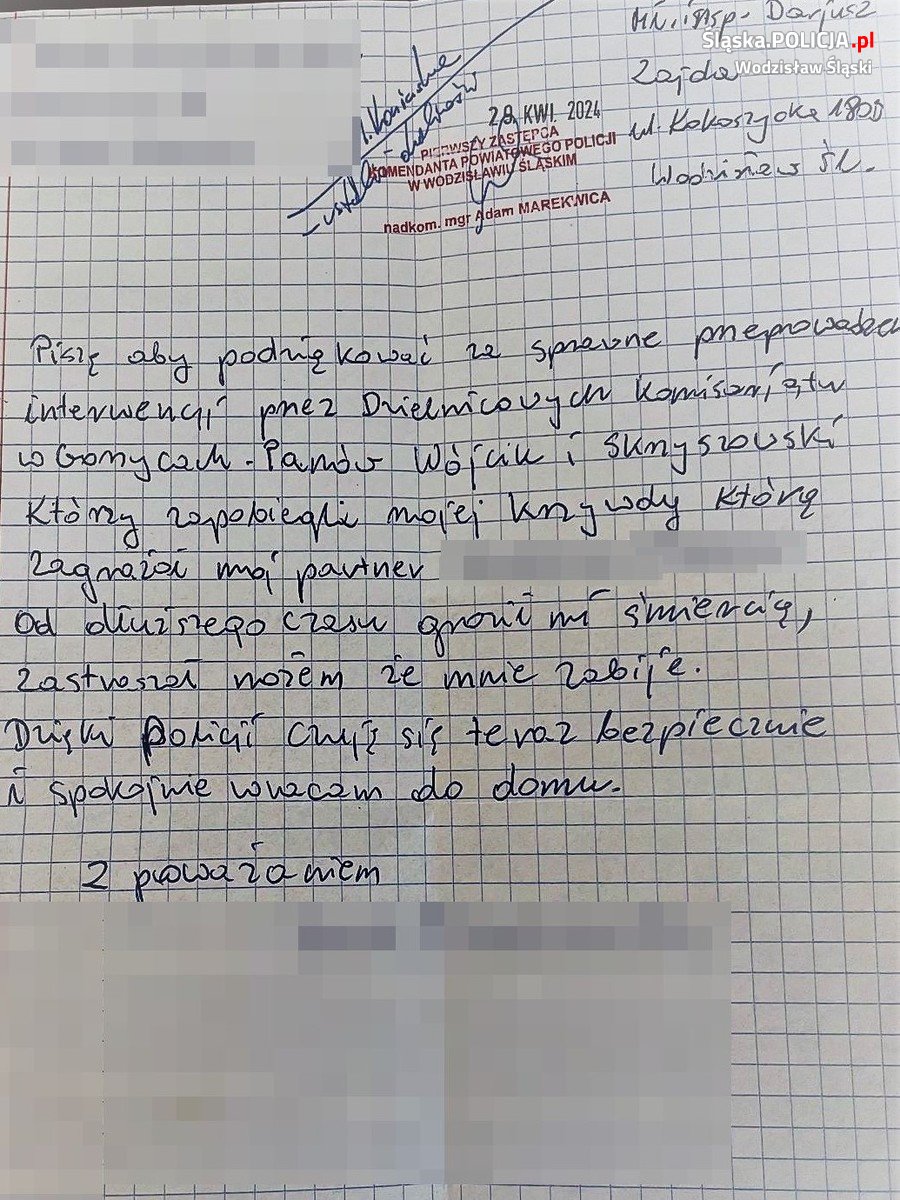 Mł. insp. Dariusz
Śląska.POLICJA.pl
Wodzisław Śląski
Zajda
ul. Kokoszycka 180B
Wodzisław Śl.
- ustalić
29. KWI. 2024
PIERWSZY ZASTĘPCA
KOMENDANTA POWIATOWEGO POLICJI
W WODZISŁAWIU ŚLĄSKIM
nadkom. mgr Adam MAREKWICA
Piszę aby podziękować za sprawne przeprowadzen
interwencji przez Dzielnicowych Komisariatu
w Gorzycach. Panów Wójcik i Skrzyszowski
Którzy zapobiegli mojej krzywdy którą
zagrażał mój partner
Od dłuższego czasu groził mi śmiercią,
zastraszał nożem że mnie zabije.
Dzięki Policji czuję się teraz bezpiecznie
i spokojnie wracam do domu.
Z poważaniem